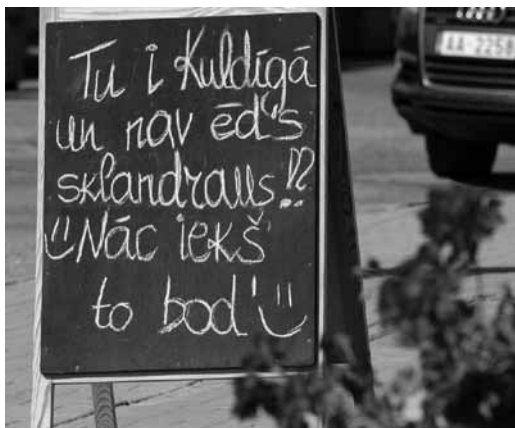 Tu i Kuldīgā
un nav ēd's
sklandrauss!?
Nāc iekš
to bod'
AA-2258